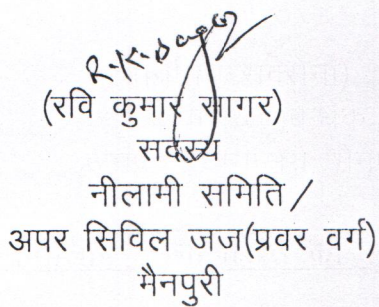 (रवि कुमार सागर)
सदस्य
नीलामी समिति /
अपर सिविल जज(प्रवर वर्ग)
मैनपुरी